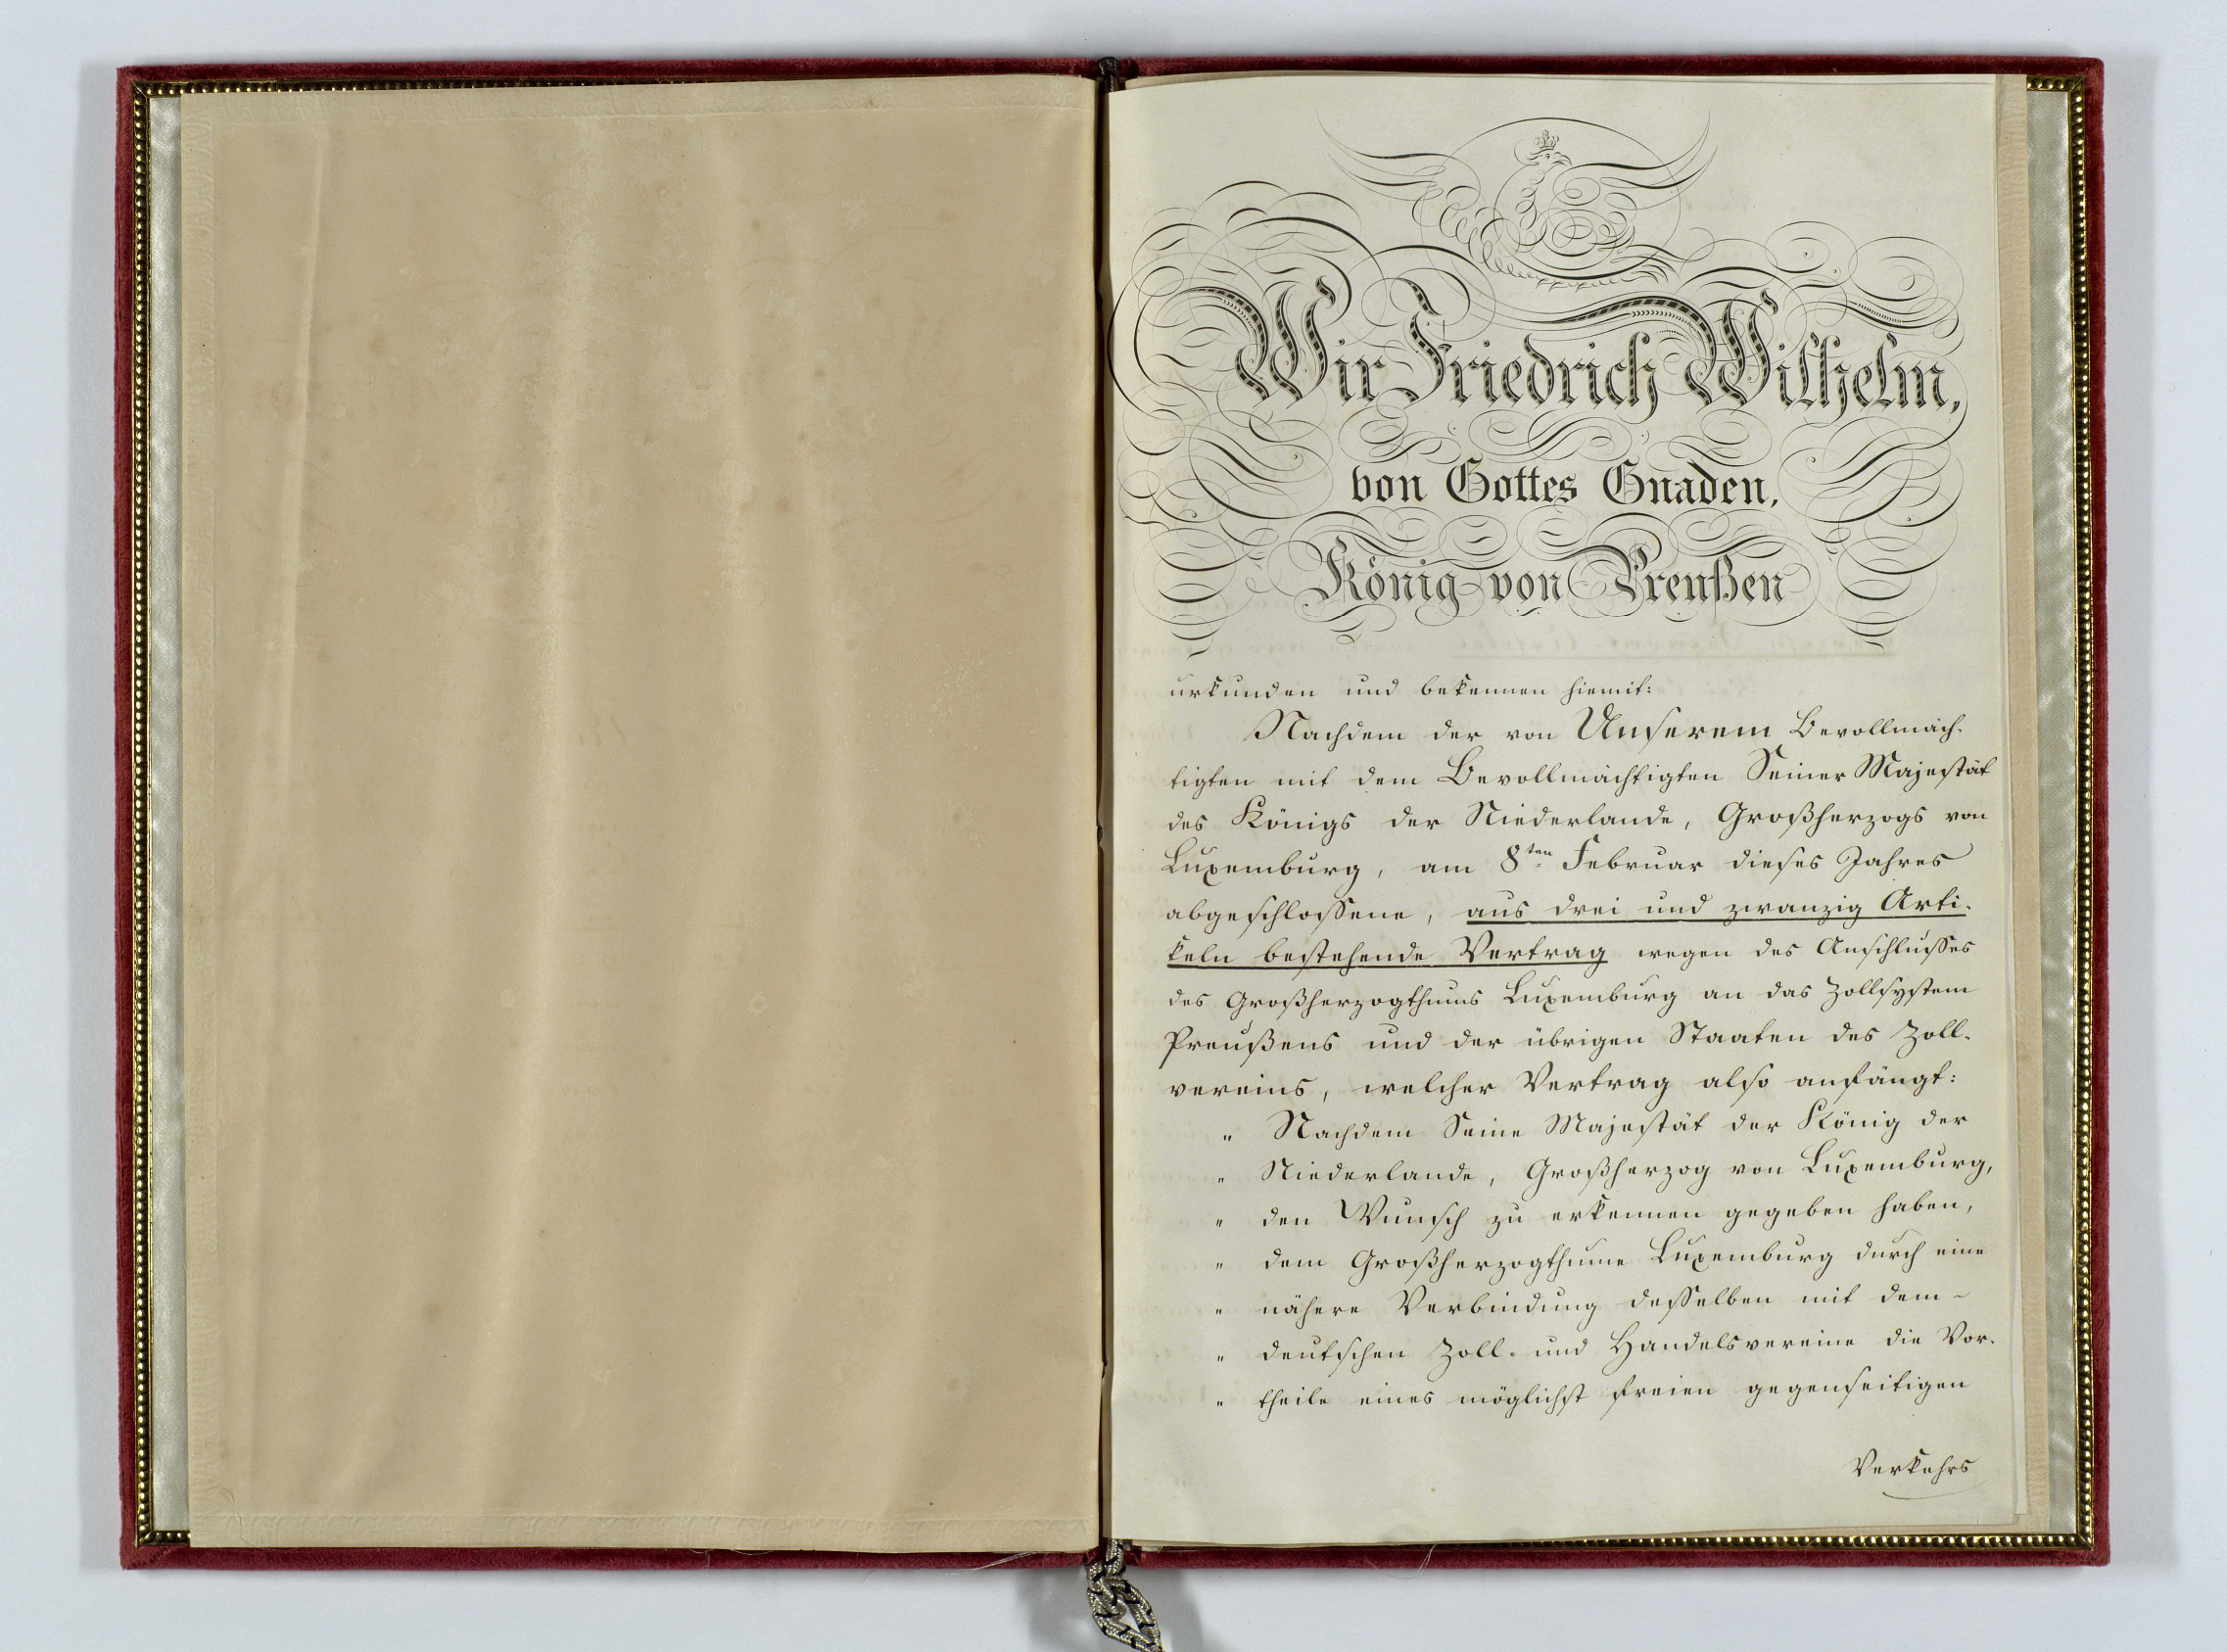 Wir Friedrich Wilhelm,
von Gottes Gnaden,
König von Preußen
urkunden und bekennen hiemit:
Nachdem der von Unserem Bevollmäch-
tigten mit dem Bevollmächtigten Seiner Majestät
des Königs der Niederlande, Großherzogs von
Luxemburg, am 8ten Februar dieses Jahres
abgeschlossene, aus drei und zwanzig Arti-
keln bestehende Vertrag wegen des Anschlusses
des Großherzogthums Luxemburg an das Zollsystem
Preußens und der übrigen Staaten des Zoll-
vereins, welcher Vertrag also anfängt:
" Nachdem Seine Majestät der König der
" Niederlande, Großherzog von Luxemburg,
" den Wunsch zu erkennen gegeben haben,
" dem Großherzogthume Luxemburg durch eine
" nähere Verbindung desselben mit dem
" deutschen Zoll- und Handelsvereine die Vor-
" theile eines möglichst freien gegenseitigen
Verkehrs